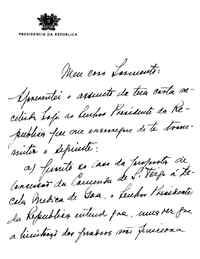 PRESIDÊNCIA DA REPÚBLICA
Meu caro Sarmento:
Apresentei o assunto da tua carta re-
cebida hoje ao Senhor Presidente da Re-
pública que me encarregou de te trans-
mitir o seguinte:
a) Quanto ao caso da proposta de
concessão da Comenda de S. Tiago à Es-
cola Médica de Goa, o Senhor Presidente
da República entende que, uma vez que
a hierarquia dos graus não funciona